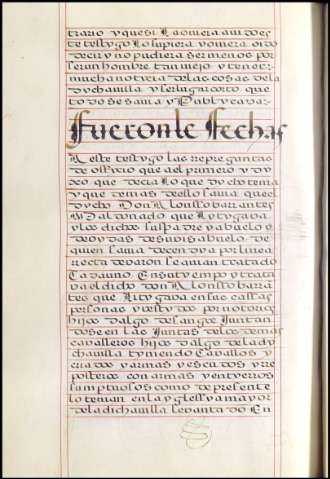 trario y que si lo oviera aui dos es
te testygo lo supiera y oviera oido
decir y no pudiera ser menos por
ser un hombre tan viejo y tener
mucha noticia de las cosas de la
dycha villa y ser lugar corto que
todo se savia y publycava ~
fueronle fechas
A este testygo las repreguntas
de officio que al primero y dy
xo que decia lo que dycho tenia
y que demas dello savia que el
dycho Don Alonsso barrantes
maldonado que lytygava
y los dichos su padre y abuelo y
de oydas de su visabuelo de
quien savia decendya por linea
recta de baron se avian tratado
Cada uno En su tyempo y trata
va el dicho don Alonsso barra
tes que lytygava en sus cassas
personas y vestydos por notorios
hijos dalgo de sangre Juntan
dose en las Juntas de los demas
cavalleros hijos dalgo de la dy
cha villa tyniendo Cavallos y
criados y armas y escudos y rre
posteros con armas y entierros
sumptuosos como de presente
lo tenian en la yglessia mayor
de la dicha villa levantado En